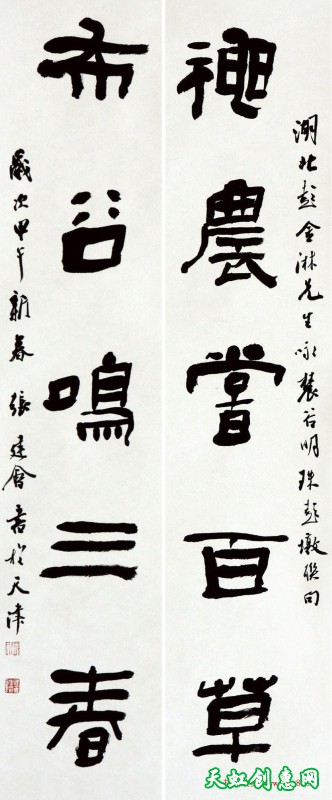 湖北彭金淋先生咏農谷明珠彭墩聯句
神農嘗百草
布谷鳴三春
歲次甲午新春 張建會書於天津
天虹创意网